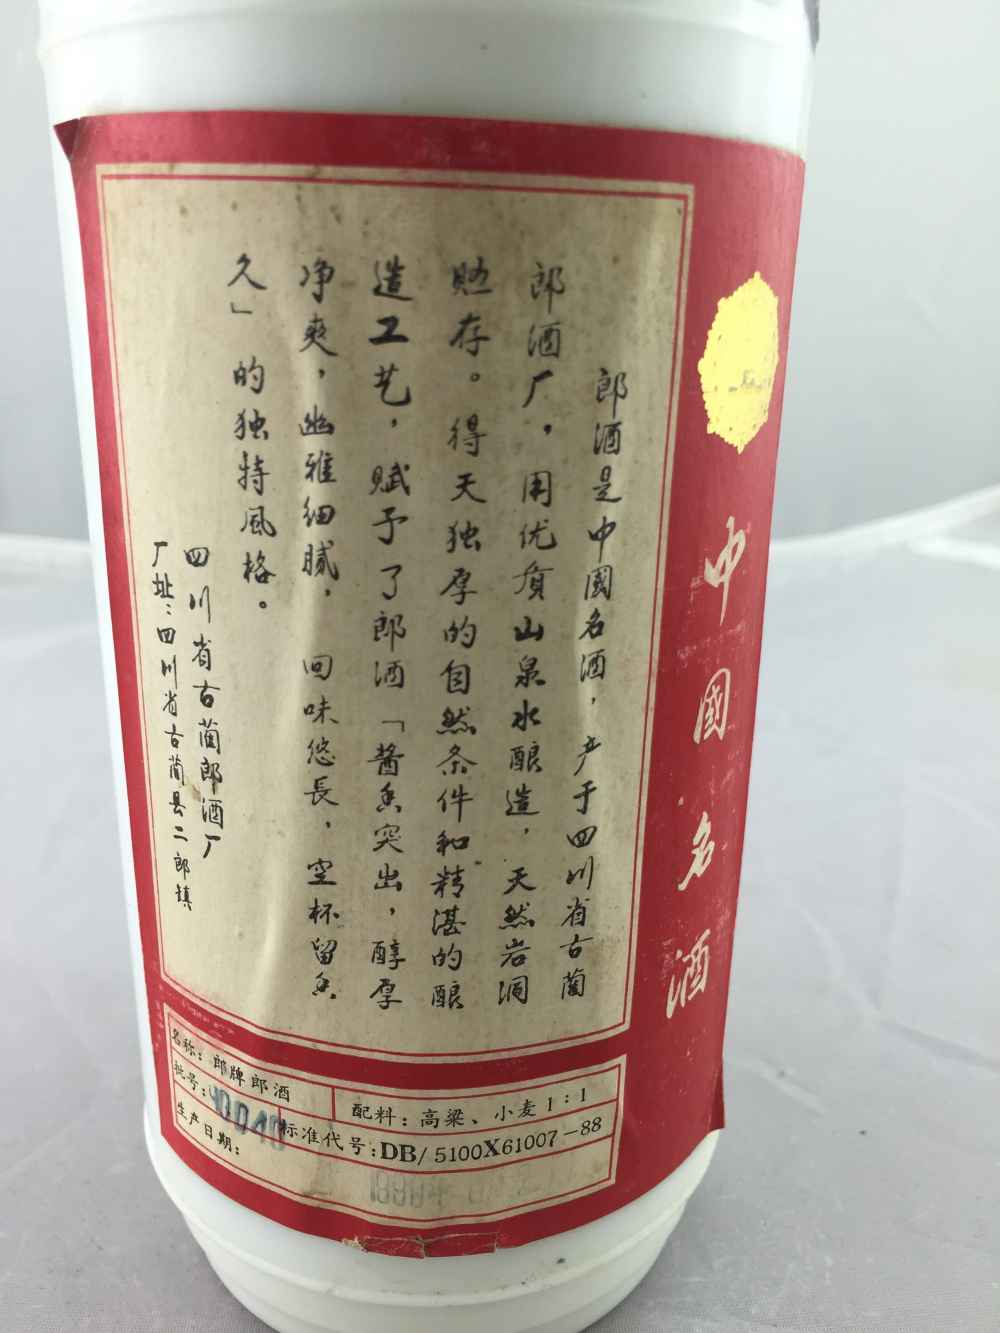 郎酒是中國名酒，产于四川省古蔺
郎酒厂，用优质山泉水酿造，天然岩洞
贮存。得天独厚的自然条件和精湛的酿
造工艺，赋予了郎酒「酱香突出，醇厚
净爽，幽雅细腻，回味悠長，空杯留香
久」的独特風格。
四川省古蔺郎酒厂
厂址：四川省古蔺县二郎镇
中國名酒
名称：郎牌郎酒
配料：高粱、小麦 1：1
批号：
标准代号：DB/5100X61007－88
生产日期：